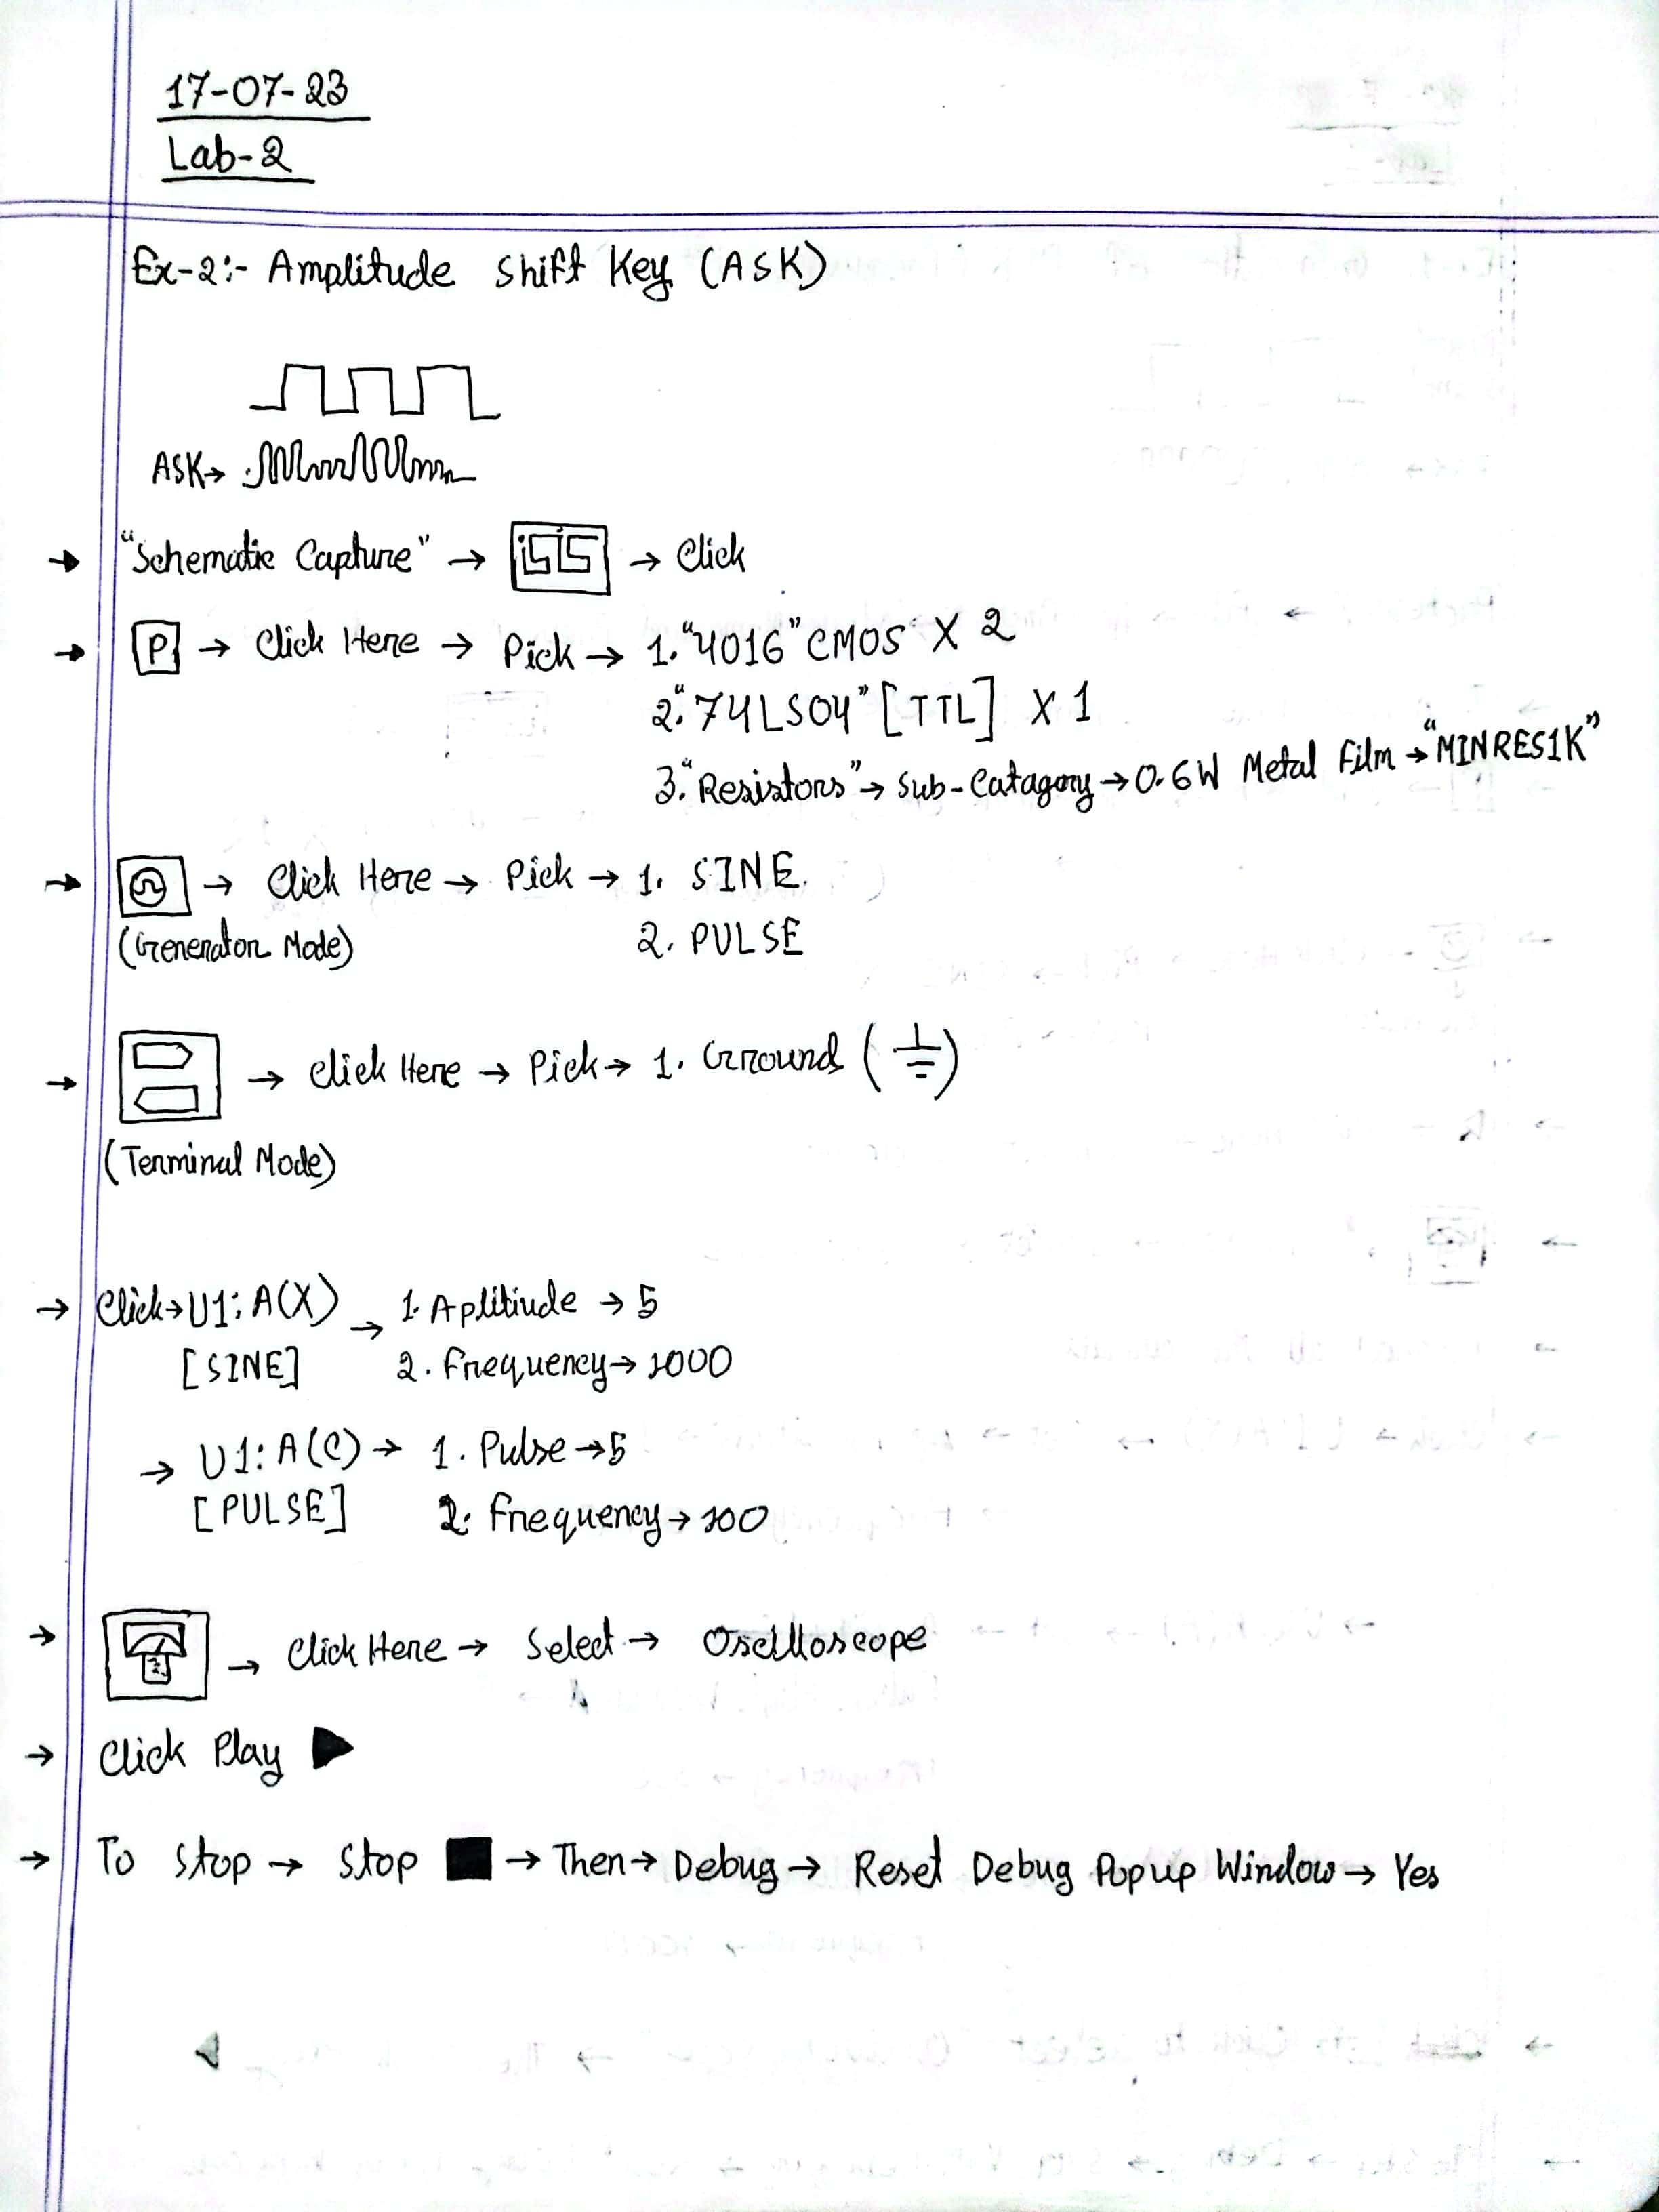 17-07-23
Lab-2
Ex-2:- Amplitude Shift Key (ASK)
ASK→
→ "Schematic Capture" → ISIS → Click
→ P → Click Here → Pick → 1. "4016" CMOS X 2
2. "74LS04" [TTL] X 1
3. "Resistors" → Sub-Catagory → 0.6W Metal Film → "MINRES1K"
→ → Click Here → Pick → 1. SINE.
(Generator Mode) 2. PULSE
→ → Click Here → Pick → 1. Ground ( )
(Terminal Mode)
→ Click → U1:A(X) → 1. Aplitiude → 5
[SINE] 2. Frequency → 1000
→ U1:A(C) → 1. Pulse → 5
[PULSE] 2. Frequency → 100
→ → Click Here → Select → Oscilloscope
→ Click Play ▶
→ To Stop → Stop ■ → Then → Debug → Reset Debug Popup Window → Yes